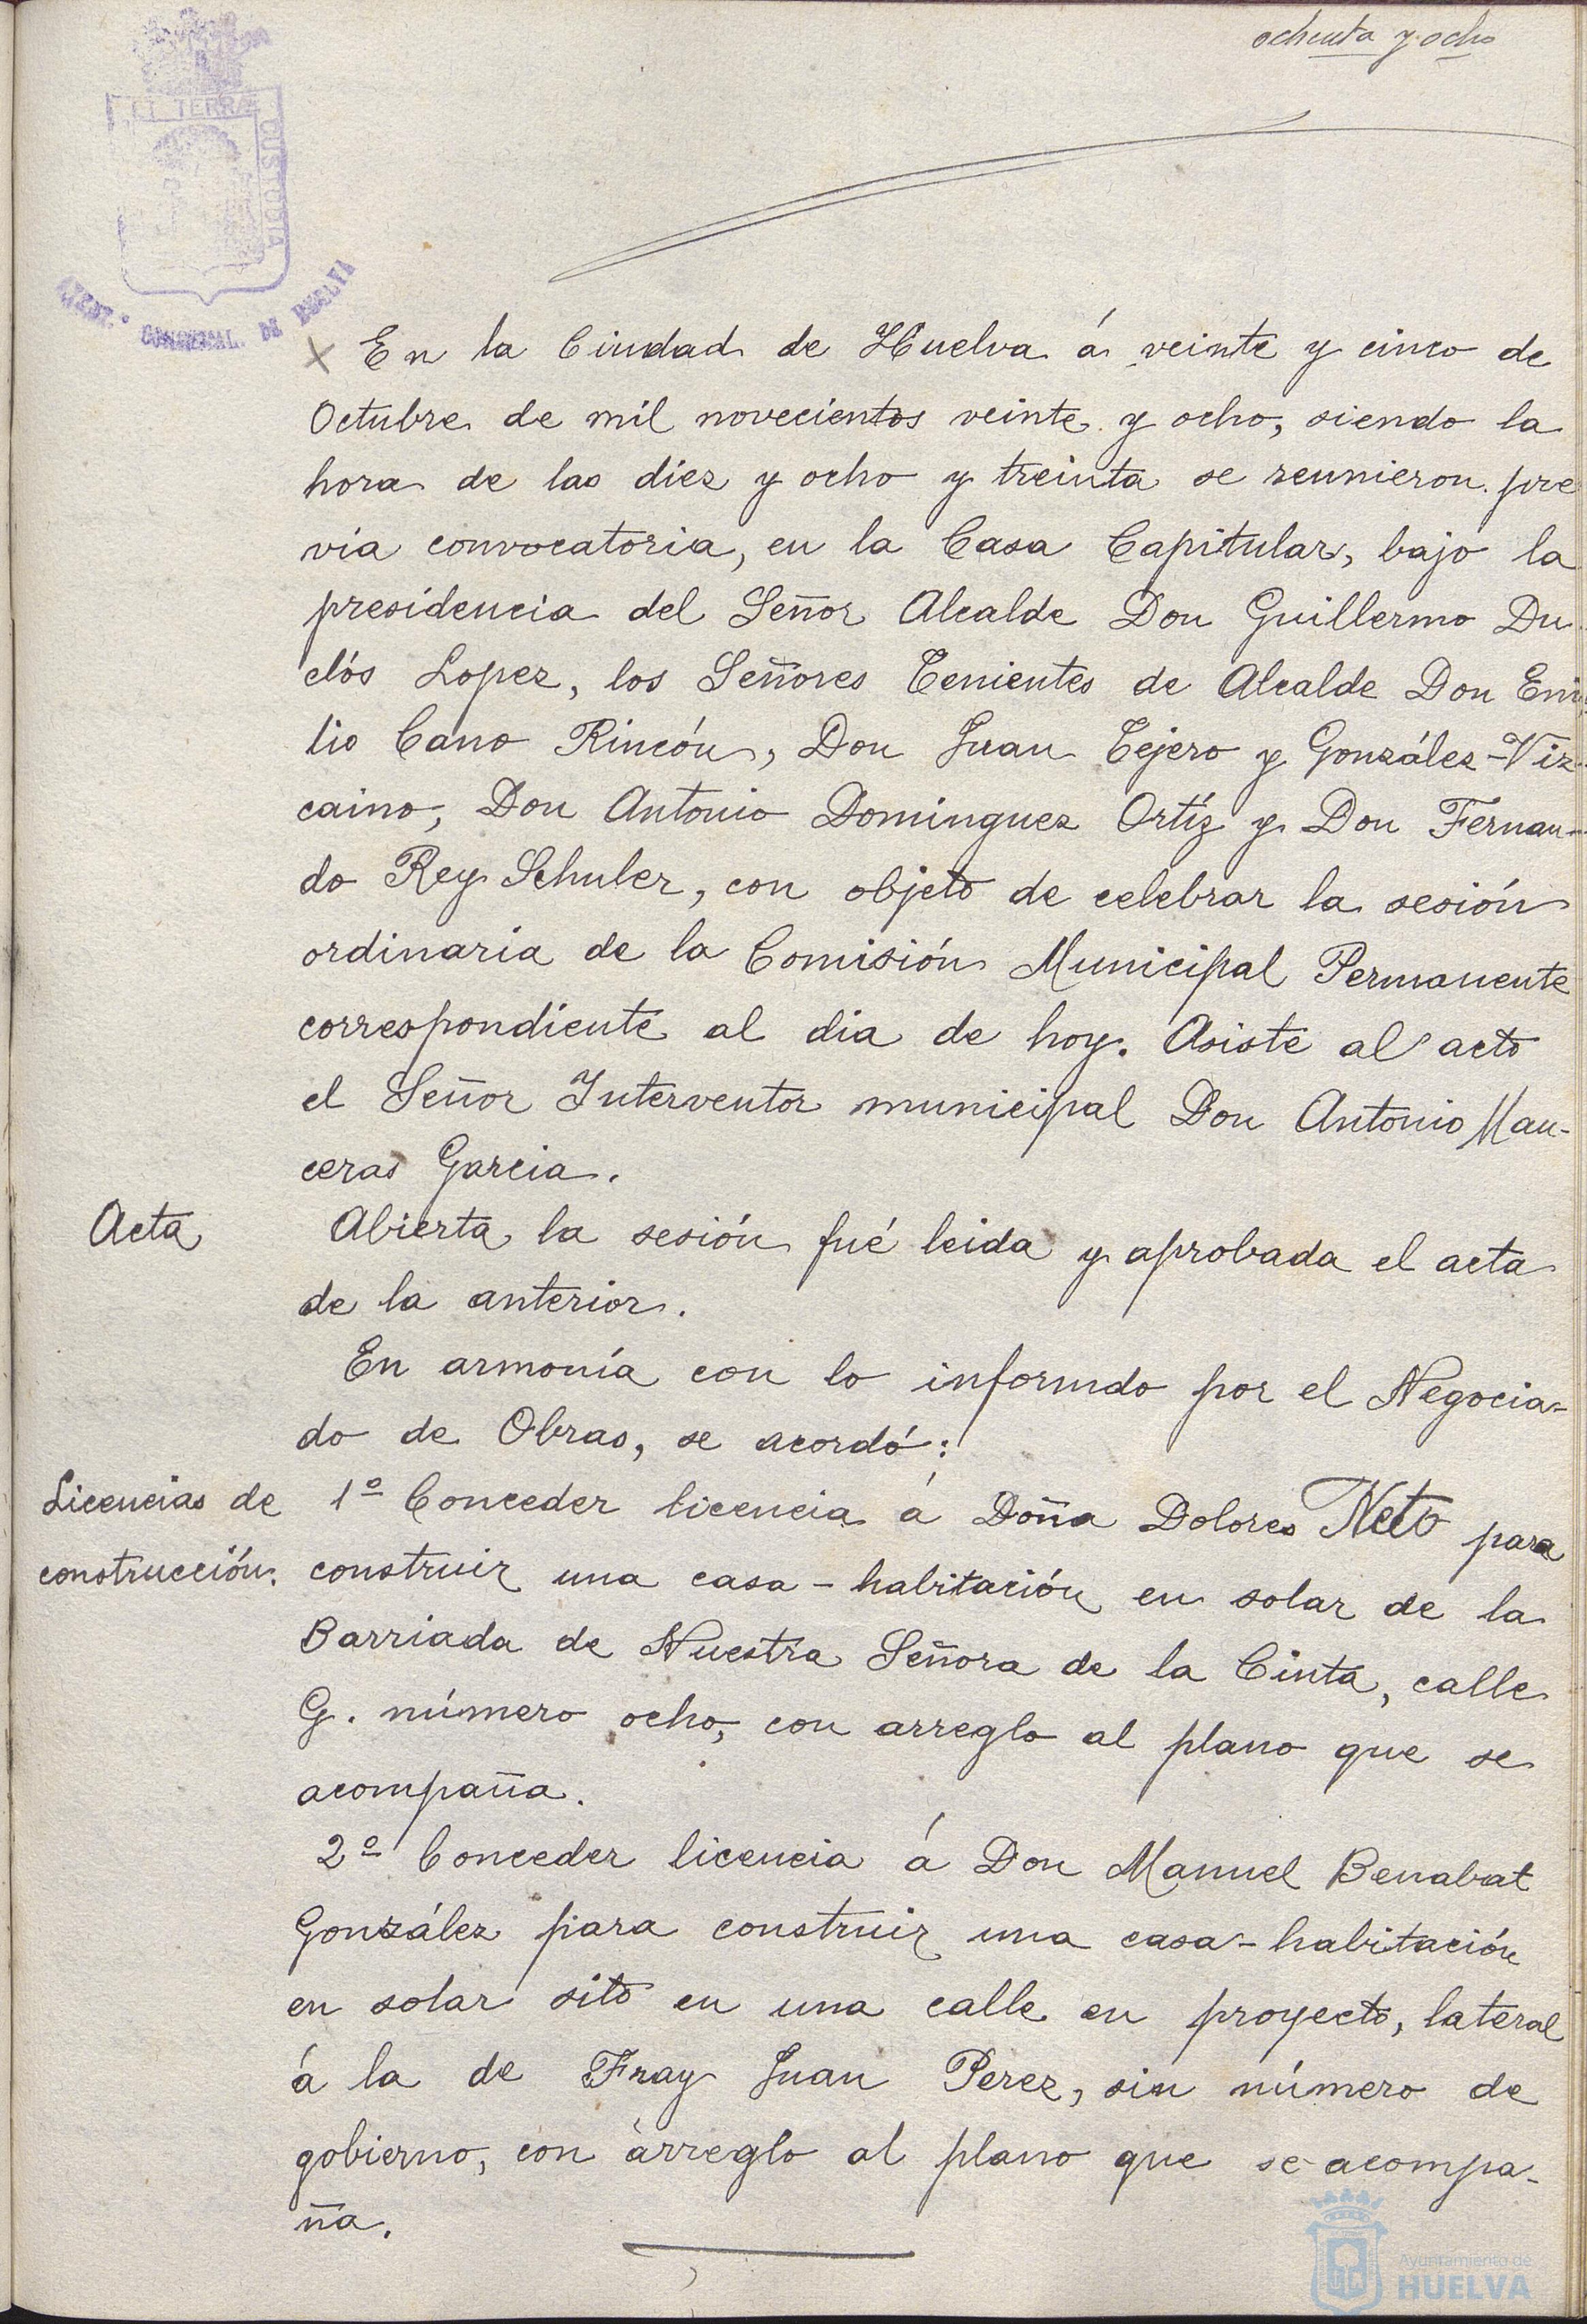 ochenta y ocho
ET TERRÆ
CUSTODIA
HUELVA
X En la Ciudad de Huelva á veinte y cinco de
Octubre de mil novecientos veinte y ocho, siendo la
hora de las diez y ocho y treinta se reunieron pre
via convocatoria, en la Casa Capitular, bajo la
presidencia del Señor Alcalde Don Guillermo Du-
clós Lopez, los Señores Tenientes de Alcalde Don Emi-
lio Cano Rincón, Don Juan Tejero y González-Viz-
caino, Don Antonio Dominguez Ortíz y Don Fernan-
do Rey Schuler, con objeto de celebrar la sesión
ordinaria de la Comisión Municipal Permanente
correspondiente al dia de hoy. Asiste al acto
el Señor Interventor municipal Don Antonio Man-
ceras Garcia.
Acta Abierta la sesión fué leida y aprobada el acta
de la anterior.
En armonía con lo informdo por el Negocia-
do de Obras, se acordó:
Licencias de 1º Conceder licencia á Doña Dolores Neto para
construcción. construir una casa-habitación en solar de la
Barriada de Nuestra Señora de la Cinta, calle
G. número ocho, con arreglo al plano que se
acompaña.
2º Conceder licencia á Don Manuel Benabat
González para construir una casa-habitación
en solar sito en una calle en proyecto, lateral
á la de Fray Juan Perez, sin número de
gobierno, con arreglo al plano que se acompa-
ña.
Ayuntamiento de
HUELVA